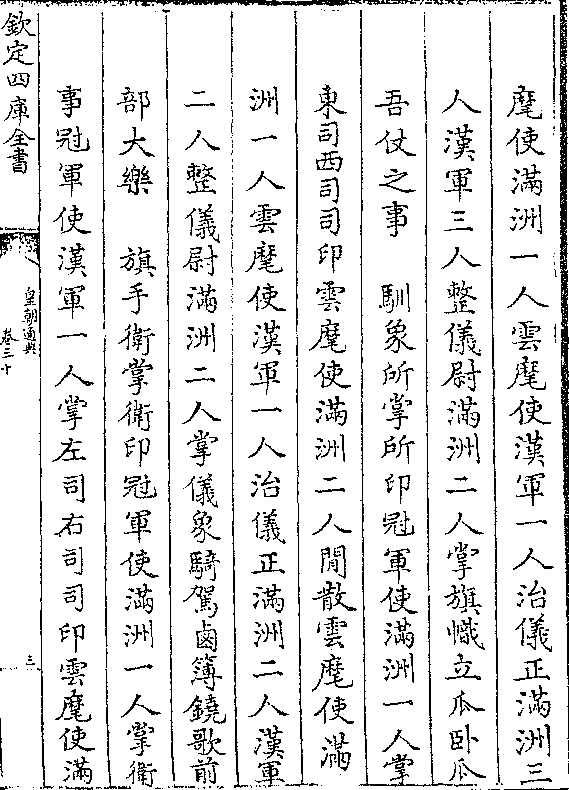 麾使滿洲一人雲麾使漢軍一人治儀正滿洲三
人漢軍三人整儀尉滿洲二人掌旗幟立瓜卧瓜
吾仗之事　馴象所掌所印冠軍使滿洲一人掌
東司西司司印雲麾使滿洲二人閒散雲麾使滿
洲一人雲麾使漢軍一人治儀正滿洲二人漢軍
二人整儀尉滿洲二人掌儀象騎駕鹵簿鐃歌前
部大樂　旗手衛掌衛印冠軍使滿洲一人掌衛
事冠軍使漢軍一人掌左司右司司印雲麾使滿
欽定四庫全書
皇朝通典
卷三十
三